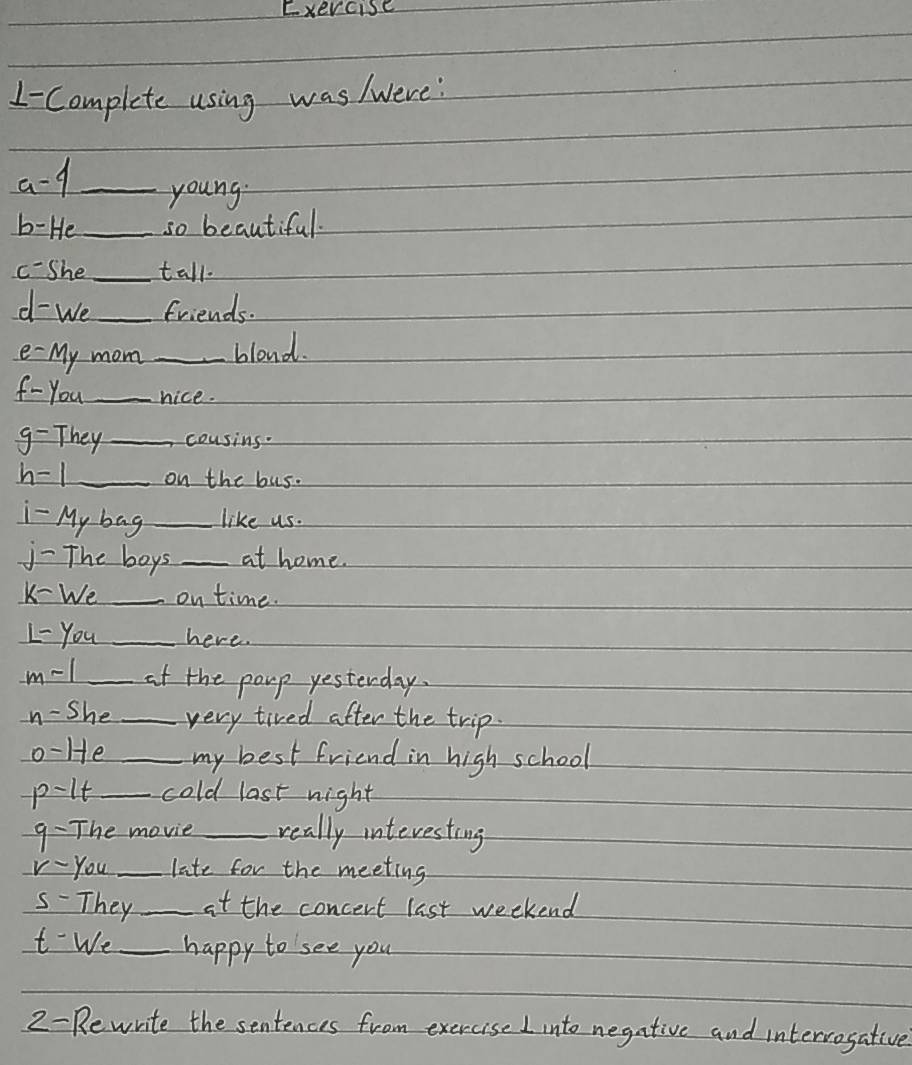 Exercise
1-Complete using was/were:
a-I ____ young.
b-He ____ so beautiful.
c-She ____ tall.
d-We ____ friends.
e-My mom ____ blond.
f-You ____ nice.
g-They ____ cousins.
h-I ____ on the bus.
i-My bag ____ like us.
j-The boys ____ at home.
k-We ____ on time.
L-You ____ here.
m-I ____ at the parp yesterday.
n-She ____ very tired after the trip.
o-He ____ my best friend in high school
p-It ____ cold last night
q-The movie ____ really interesting
r-You ____ late for the meeting
s-They ____ at the concert last weekend
t-We ____ happy to see you
2-Rewrite the sentences from exercise 1 into negative and interrogative: